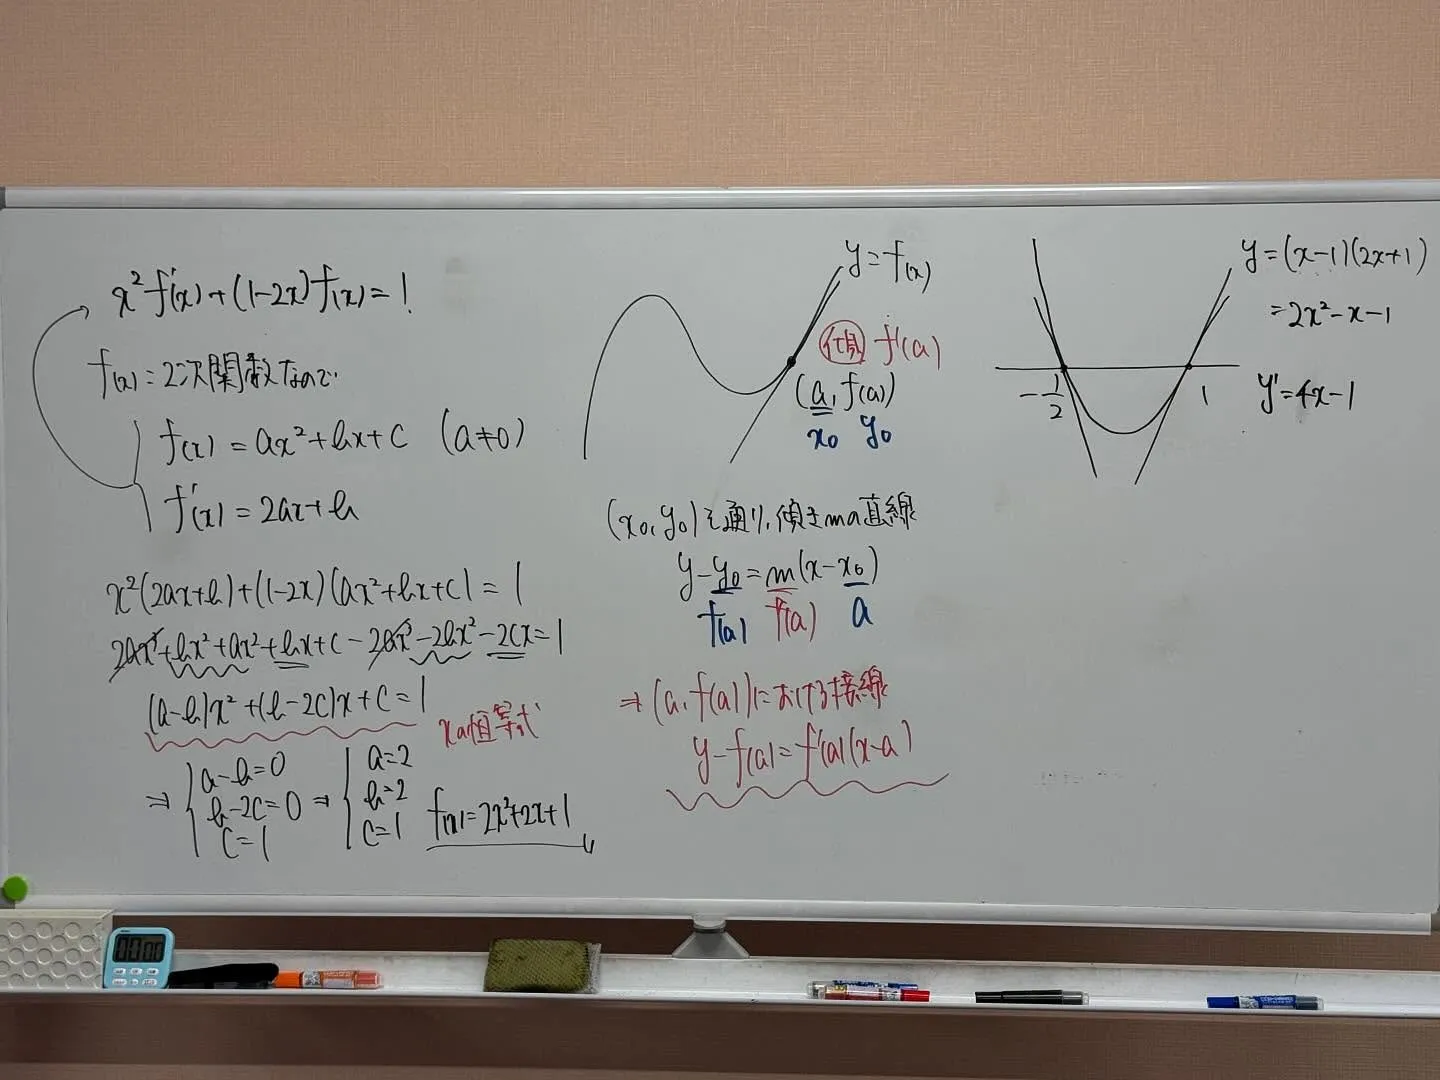 x²f'(x)+(1-2x)f(x)=1
f(x)=2次関数なので
f(x)=ax²+bx+c (a≠0)
f'(x)=2ax+b
x²(2ax+b)+(1-2x)(ax²+bx+c)=1
2ax³+bx²+ax²+bx+c-2ax³-2bx²-2cx=1
(a-b)x²+(b-2c)x+c=1
xの恒等式
⇒ a-b=0
b-2c=0
c=1
⇒ a=2
b=2
c=1
f(x)=2x²+2x+1
y=f(x)
傾 f'(a)
(a, f(a))
x₀ y₀
(x₀, y₀)を通り, 傾きmの直線
y-y₀=m(x-x₀)
f(a) f'(a) a
⇒(a, f(a))における接線
y-f(a)=f'(a)(x-a)
y=(x-1)(2x+1)
=2x²-x-1
y'=4x-1
-1/2
1